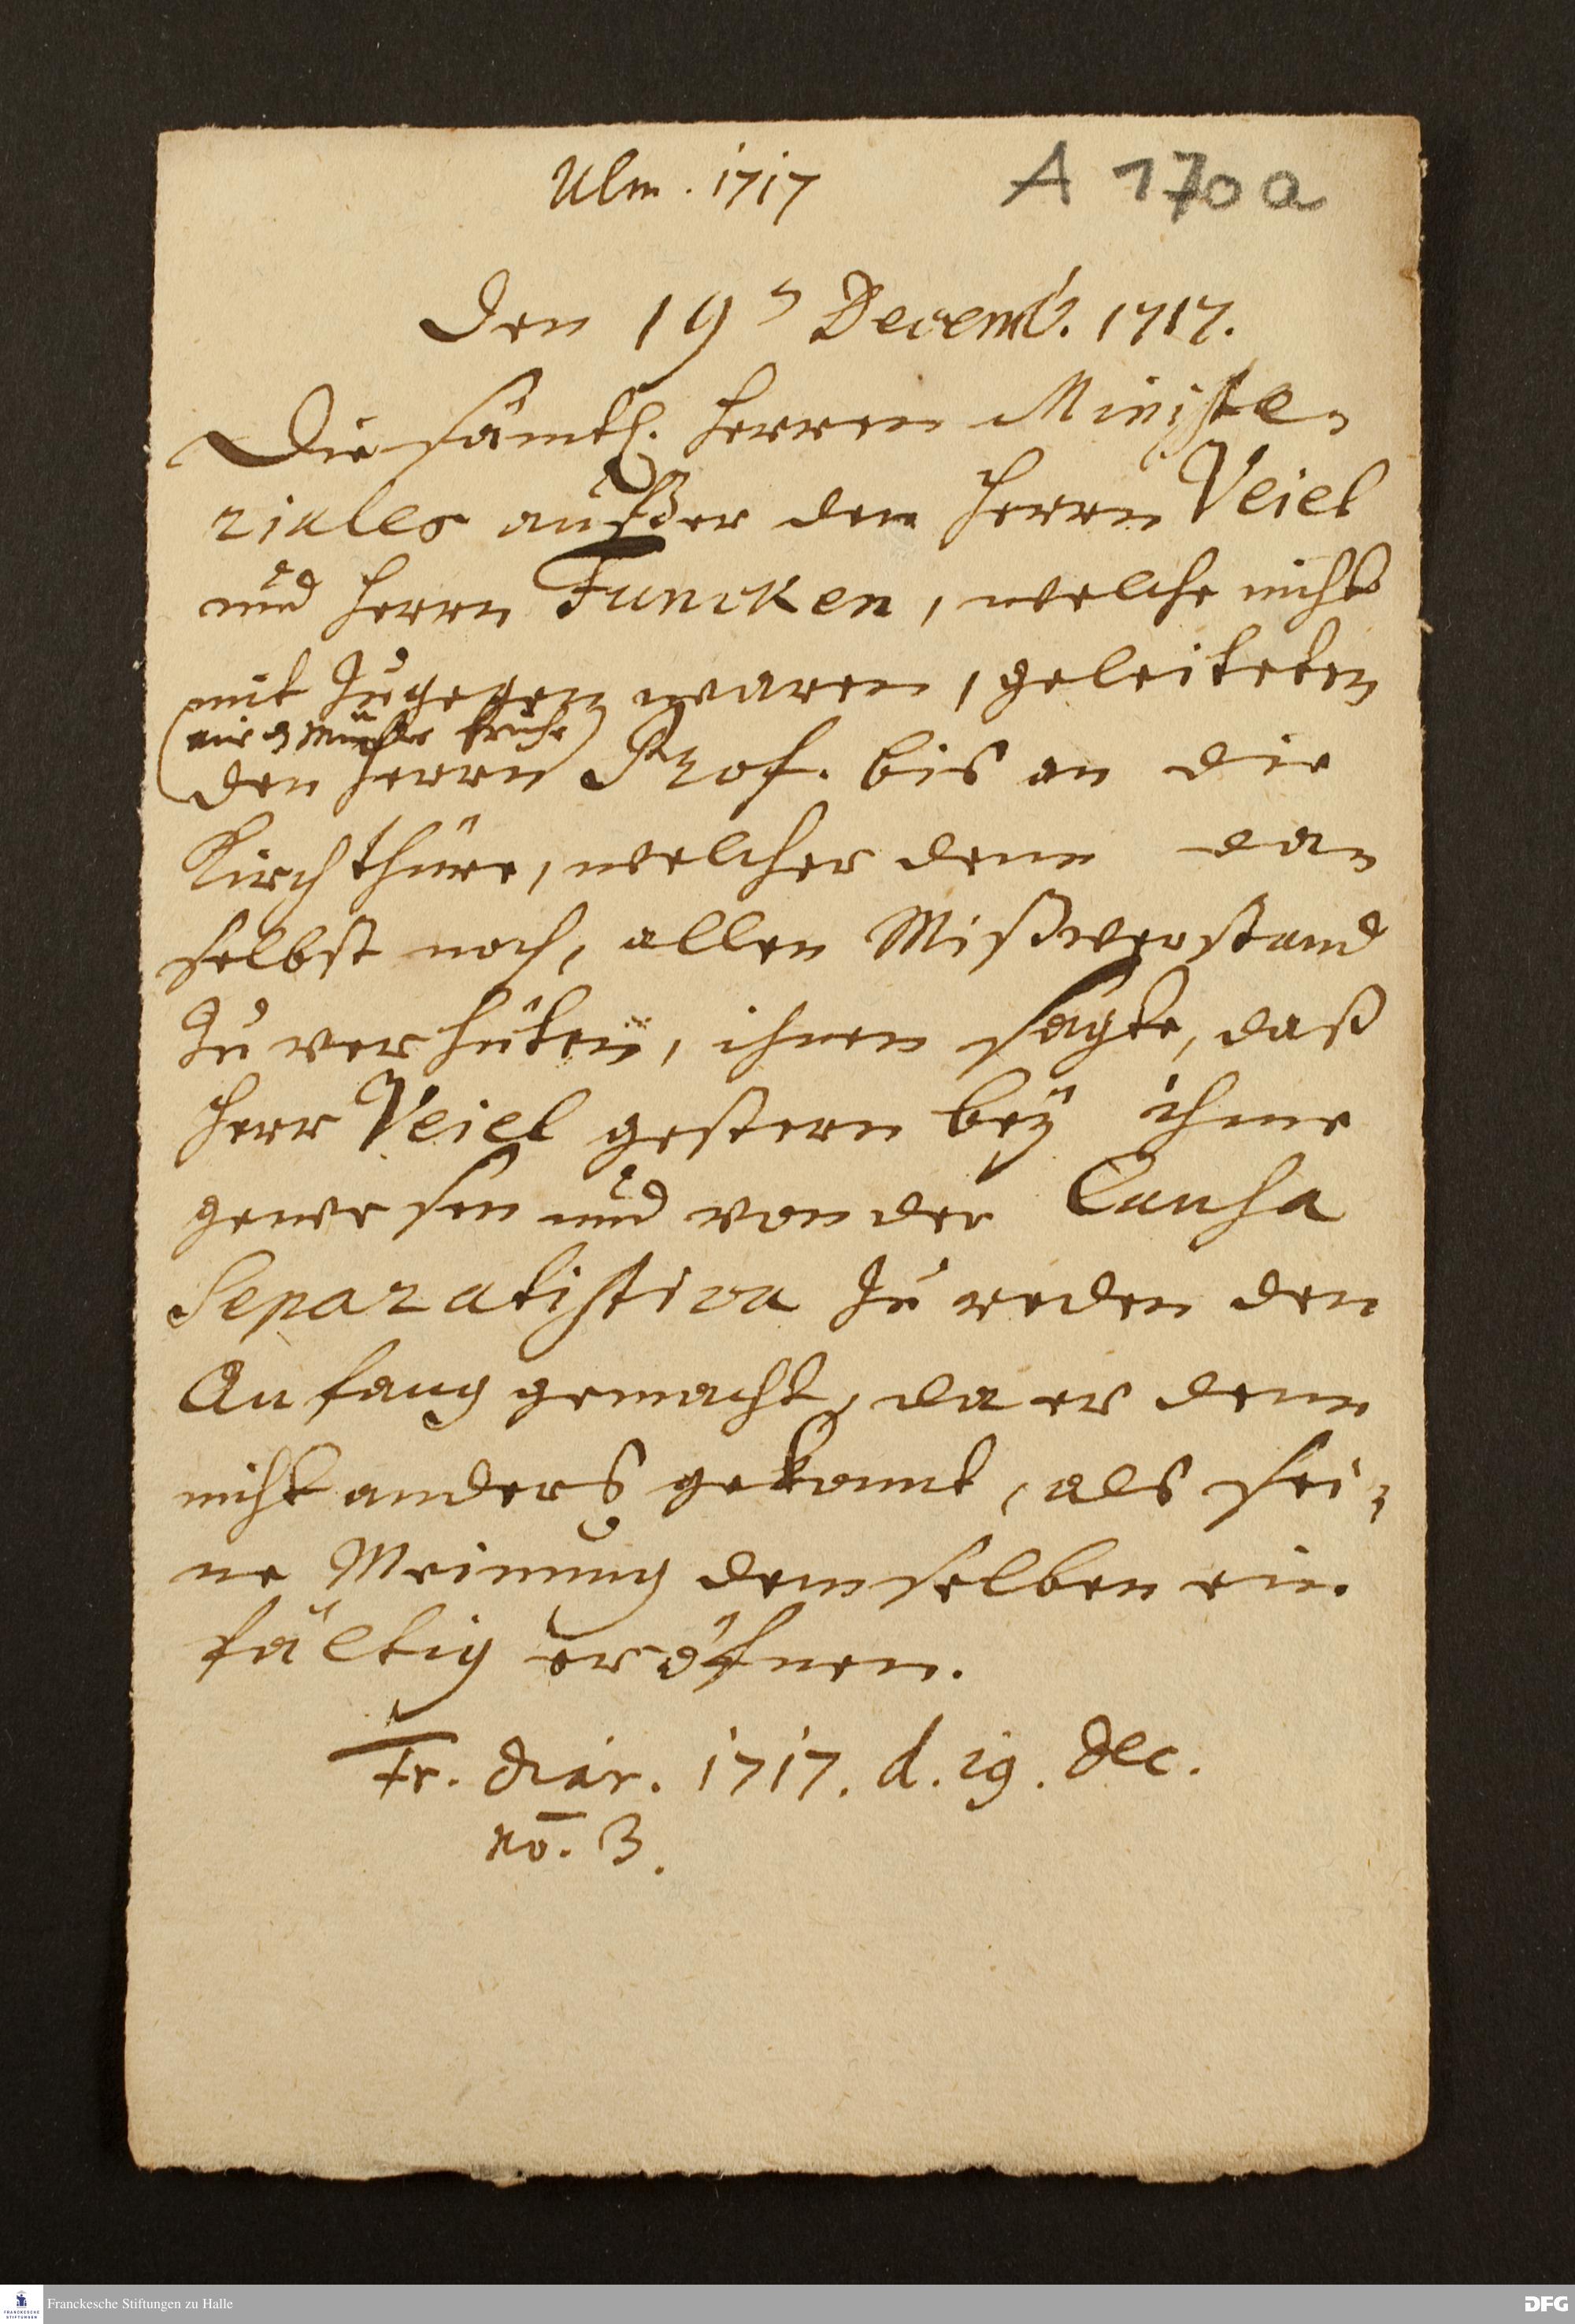 Ulm. 1717
A 170 a
Den 19 Decemb. 1717.
Die sämtl. Herren Ministe-
riales außer dem Herrn Veiel
und Herrn Funcken, welche nicht
mit zugegen waren, geleiteten
den Herrn Prof. bis an die
Kirchthüre, welcher denn da-
selbst noch, allen Mißverstand
zu verhüten, ihnen sagte, daß
Herr Veiel gestern bey ihme
gewesen und von der Causa
Separatistica zu reden den
Anfang gemacht, da er denn
nicht anders gekonnt, als sei-
ne Meinung demselben ein-
fältig eröfnen.
fr. diar. 1717. d. 19. Dec.
no. 3.
Franckesche Stiftungen zu Halle
FRANCKESCHE
STIFTUNGEN
DFG